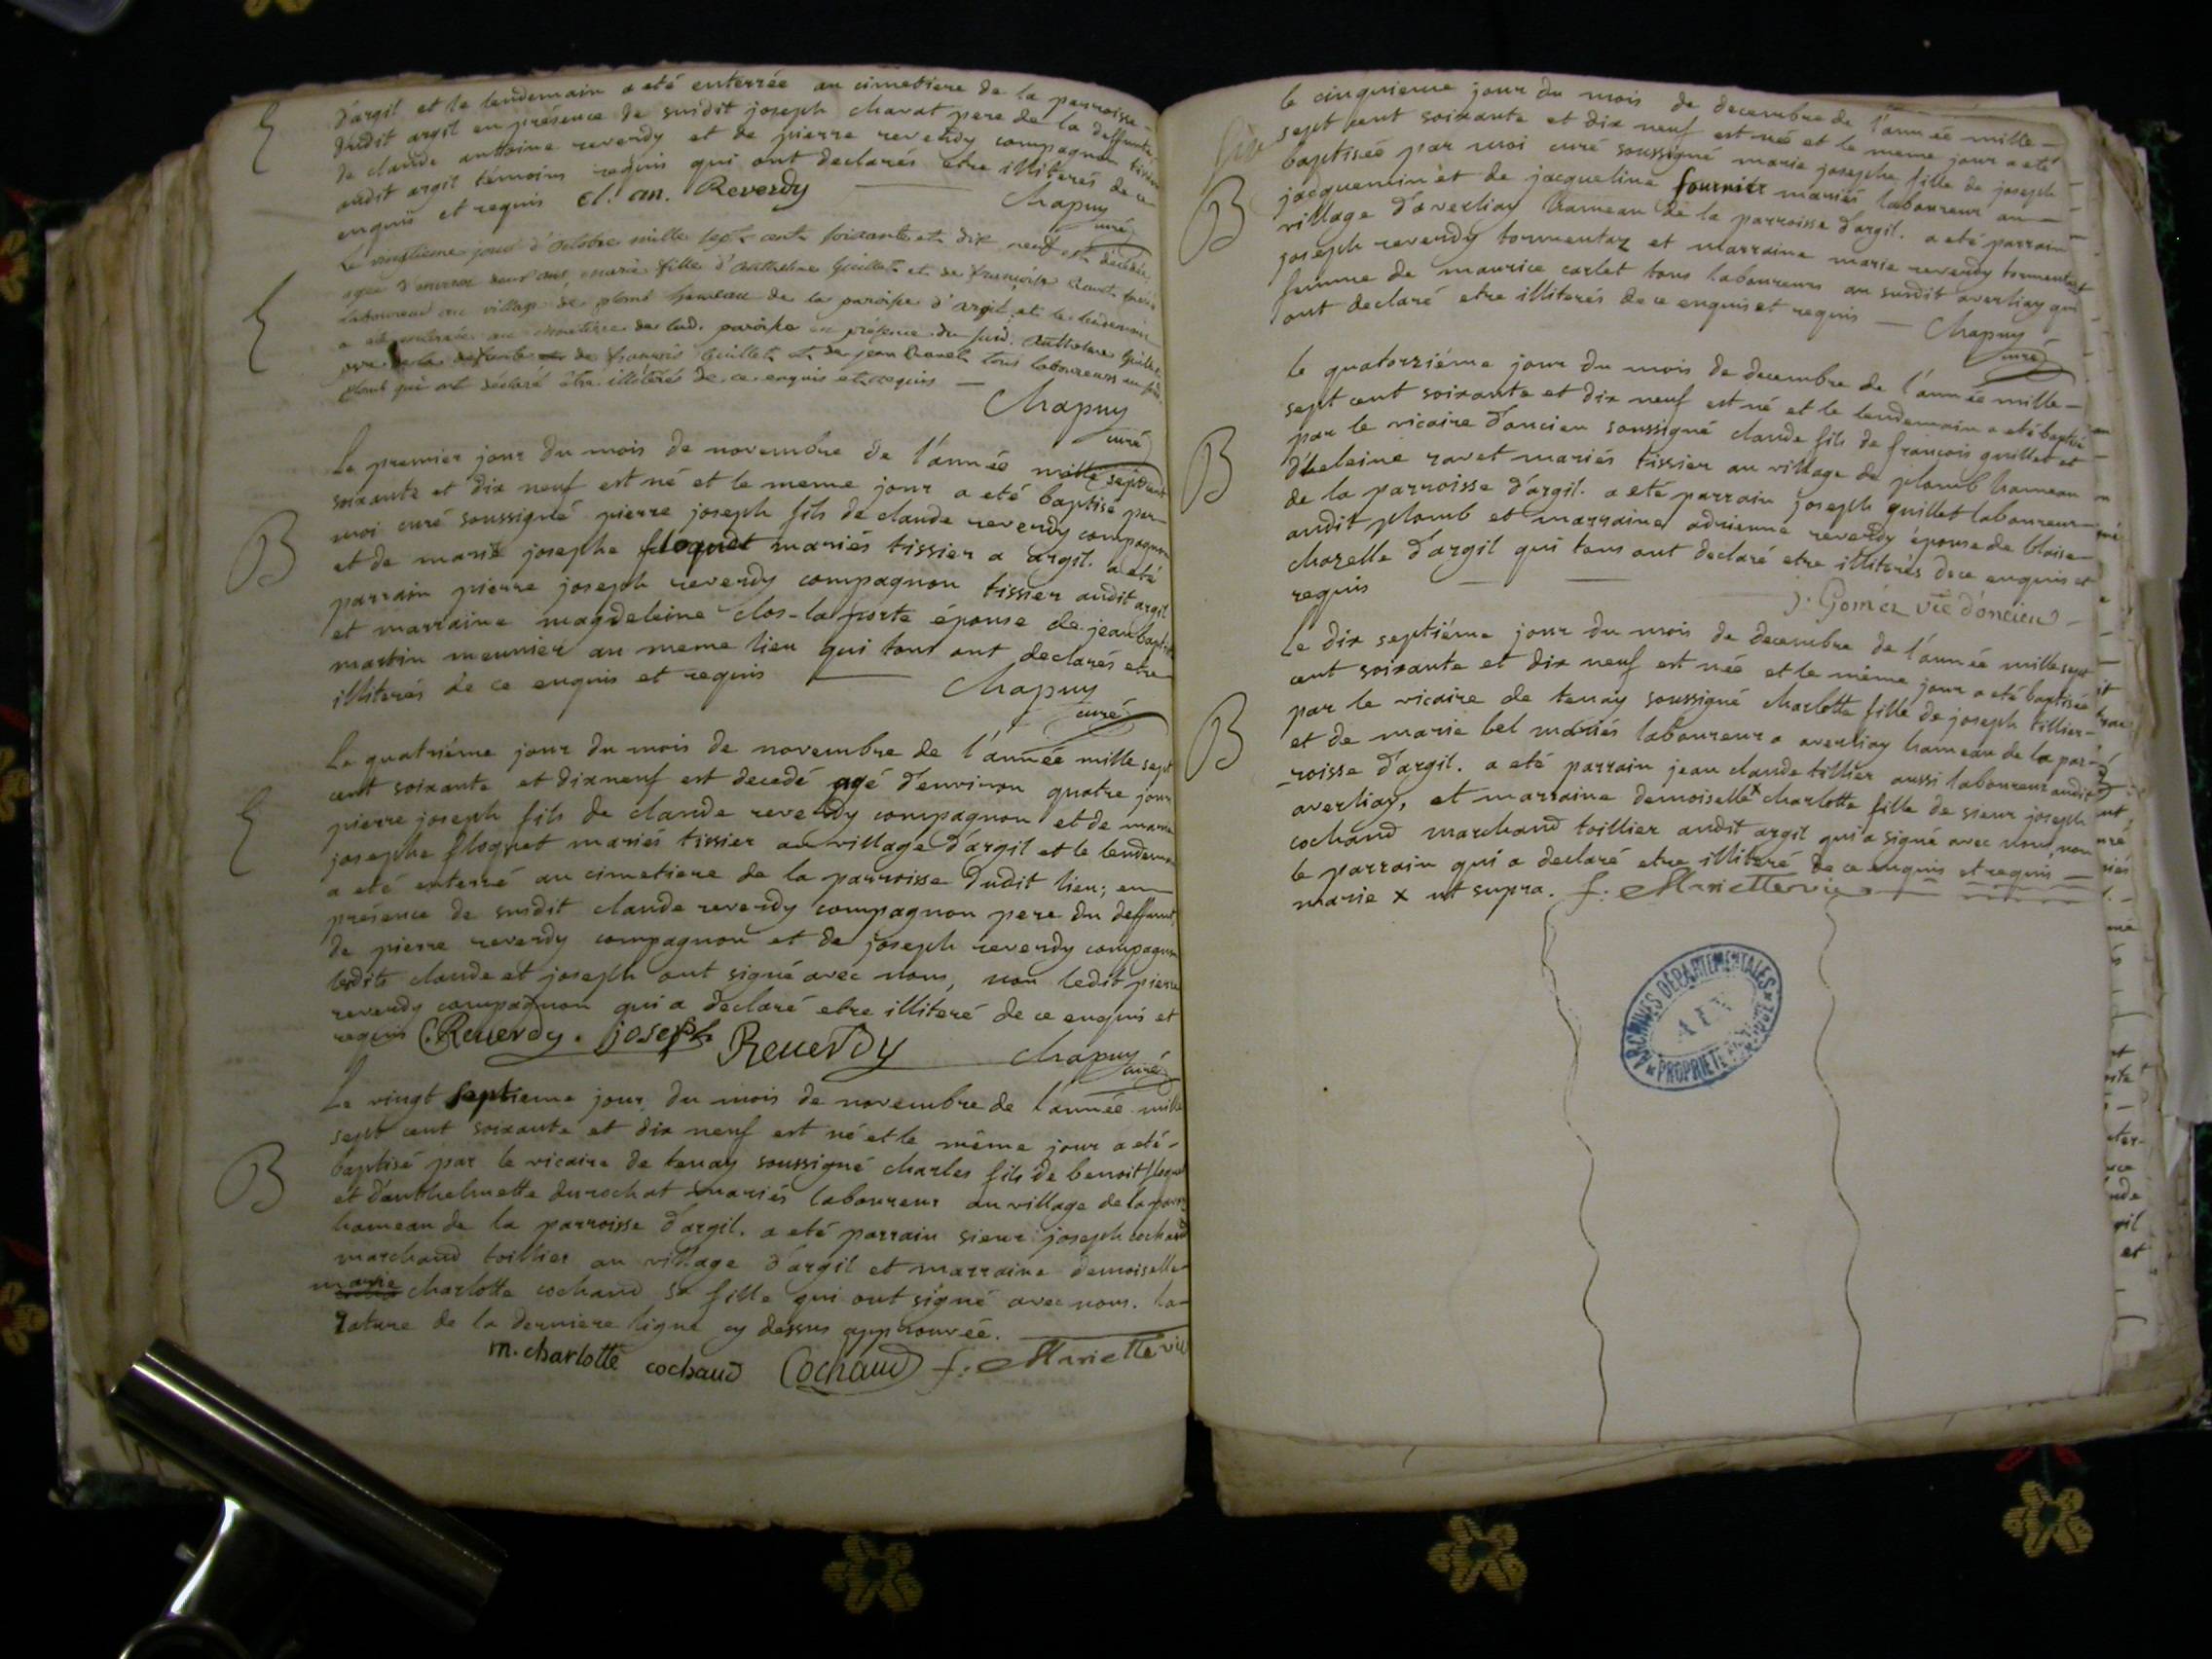 d'argil et le lendemain a eté enterrée au cimetiere de la parroisse
dudit argil en présence de susdit joseph charat pere de la deffunte
de claude antoine reverdy et de pierre reverdy compagnon tissier
audit argil témoins requis qui ont declarés etre illiterés de ce
enquis et requis cl. an. Reverdy
Chapuy
curé
E
Le vingtieme jour d'octobre mille sept cent soixante et dix neuf est décédée
agée d'environ deux ans marie fille d'anthelme Guillet et de françoise
laboureur au village de plomb hameau de la paroisse d'argil et le lendemain
a été enterrée au cimetiere de lad. paroisse en présence du susd. anthelme Guillet
pere de la defunte de françois Guillet et de jean tous laboureurs au
plomb qui ont déclaré être illiterés de ce enquis et requis
Chapuy
curé
E
Le premier jour du mois de novembre de l'année mille sept cent
soixante et dix neuf est né et le meme jour a eté baptisé par
moi curé soussigné pierre joseph fils de claude reverdy compagnon
et de marie josephe floquet mariés tissier a argil. a eté
parrain pierre joseph reverdy compagnon tissier audit argil
et marraine magdeleine clos-la-porte épouse de jean baptiste
martin meunier au meme lieu qui tous ont declarés etre
illiterés de ce enquis et requis
Chapuy
curé
B
Le quatriéme jour du mois de novembre de l'année mille sept
cent soixante et dixneuf est decedé agé d'environ quatre jour
pierre joseph fils de claude reverdy compagnon et de marie
josephe floquet mariés tissier au village d'argil et le lendemain
a eté enterré au cimetiere de la parroisse dudit lieu; en
présence de susdit claude reverdy compagnon pere du deffunt
de pierre reverdy compagnon et de joseph reverdy compagnon
lesdits claude et joseph ont signé avec nous, non ledit pierre
reverdy compagnon qui a declaré etre illiteré de ce enquis et
requis C. Reuerdy. joseph Reuerdy Chapuy
curé
E
Le vingt septieme jour du mois de novembre de l'année mille
sept cent soixante et dix neuf est né et le même jour a eté
baptisé par le vicaire de tenay soussigné charles fils de benoit floquet
et d'anthelmette durochat mariés laboureur au village de
hameau de la parroisse d'argil. a eté parrain sieur joseph cochaud
marchand toillier au village d'argil et marraine demoiselle
marie charlotte cochaud sa fille qui ont signé avec nous. la
rature de la derniere ligne cy dessus approuvée.
m. charlotte cochaud Cochaud f. Mariette vic
B
le cinquieme jour du mois de decembre de l'année mille
sept cent soixante et dix neuf est né et le meme jour a eté
baptisée par moi curé soussigné marie josephe fille de joseph
jacquemin et de jacqueline fournier mariés laboureur au
village d'averliay hameau de la parroisse d'argil. a eté parrain
joseph reverdy tormentaz et marraine marie reverdy tormentaz
femme de maurice carlet tous laboureurs au susdit averliay qui
ont declaré etre illiterés de ce enquis et requis Chapuy
curé
B
le quatorziéme jour du mois de decembre de l'année mille
sept cent soixante et dix neuf est né et le lendemain a eté baptisé
par le vicaire d'oncieu soussigné claude fils de françois guillet et
d'heleine ravet mariés tissier au village de plomb hameau
de la parroisse d'argil. a eté parrain joseph guillet laboureur
audit plomb et marraine adrienne reverdy épouse de blaise
chazelle d'argil qui tous ont declaré etre illiterés de ce enquis et
requis
j. Gomez vic d'oncieu
B
Le dix septiéme jour du mois de decembre de l'année mille sept
cent soixante et dix neuf est née et le même jour a eté baptisée
par le vicaire de tenay soussigné charlotte fille de joseph tillier
et de marie bel mariés laboureur a averliay hameau de la par
roisse d'argil. a eté parrain jean claude tillier aussi laboureur audit
averliay, et marraine demoiselle x charlotte fille de sieur joseph
cochaud marchand toillier audit argil qui a signé avec nous, non
le parrain qui a declaré etre illiteré de ce enquis et requis
marie x ut supra. f. Mariette vic
B
ARCHIVES DÉPARTEMENTALES
AIN
PROPRIÉTÉ PUBLIQUE